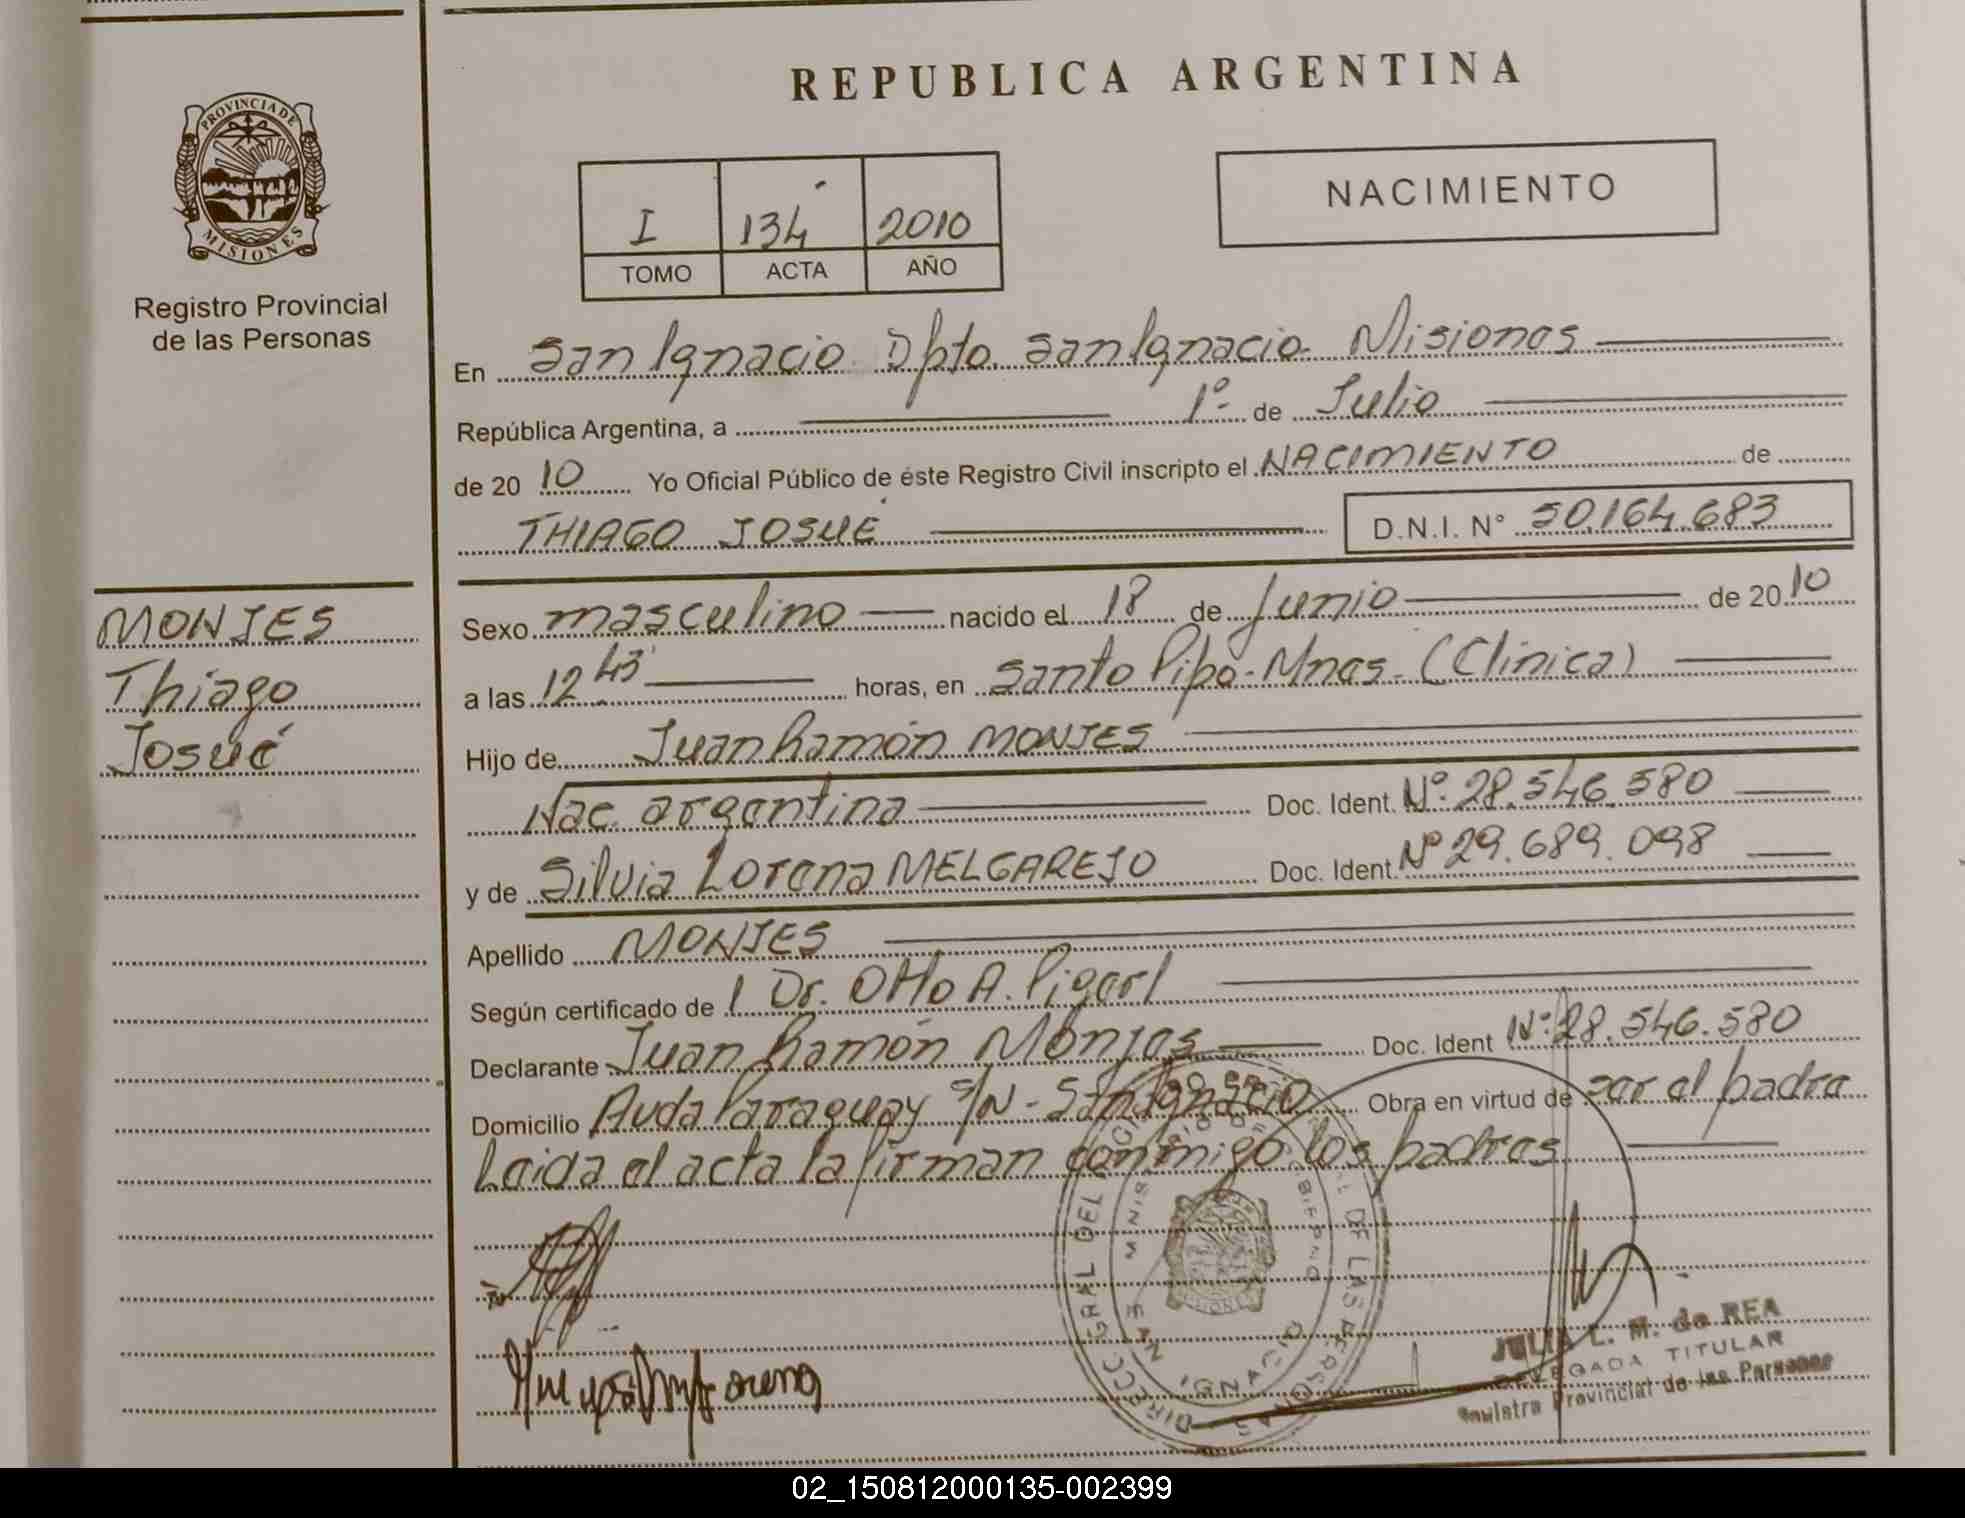 REPUBLICA ARGENTINA
PROVINCIA DE
MISIONES
Registro Provincial
de las Personas
I 134 2010
TOMO ACTA AÑO
NACIMIENTO
En San Ignacio Dpto. San Ignacio Misiones
República Argentina, a 1º de Julio
de 20 10 Yo Oficial Público de éste Registro Civil inscripto el NACIMIENTO de
THIAGO JOSUÉ D.N.I. N° 50.164.683
MONJES
Thiago
Josué
Sexo masculino nacido el 18 de Junio de 20 10
a las 12 43' horas, en Santo Pipo - Mnes - (Clínica)
Hijo de Juan Ramón MONJES
Nac. argentina Doc. Ident. Nº 28.546.580
y de Silvia Lorena MELGAREJO Doc. Ident. Nº 29.689.098
Apellido MONJES
Según certificado de Dr. Otto A.
Declarante Juan Ramón Monjes Doc. Ident Nº 28.546.580
Domicilio Avda Paraguay s/N - San Ignacio Obra en virtud de ser el padre
Leida el acta la firman conmigo los padres
DIRECC GRAL DEL DE LAS PERSONAS
JULIA L. M. de REA
DELEGADA TITULAR
Provincial de las Personas
02_150812000135-002399